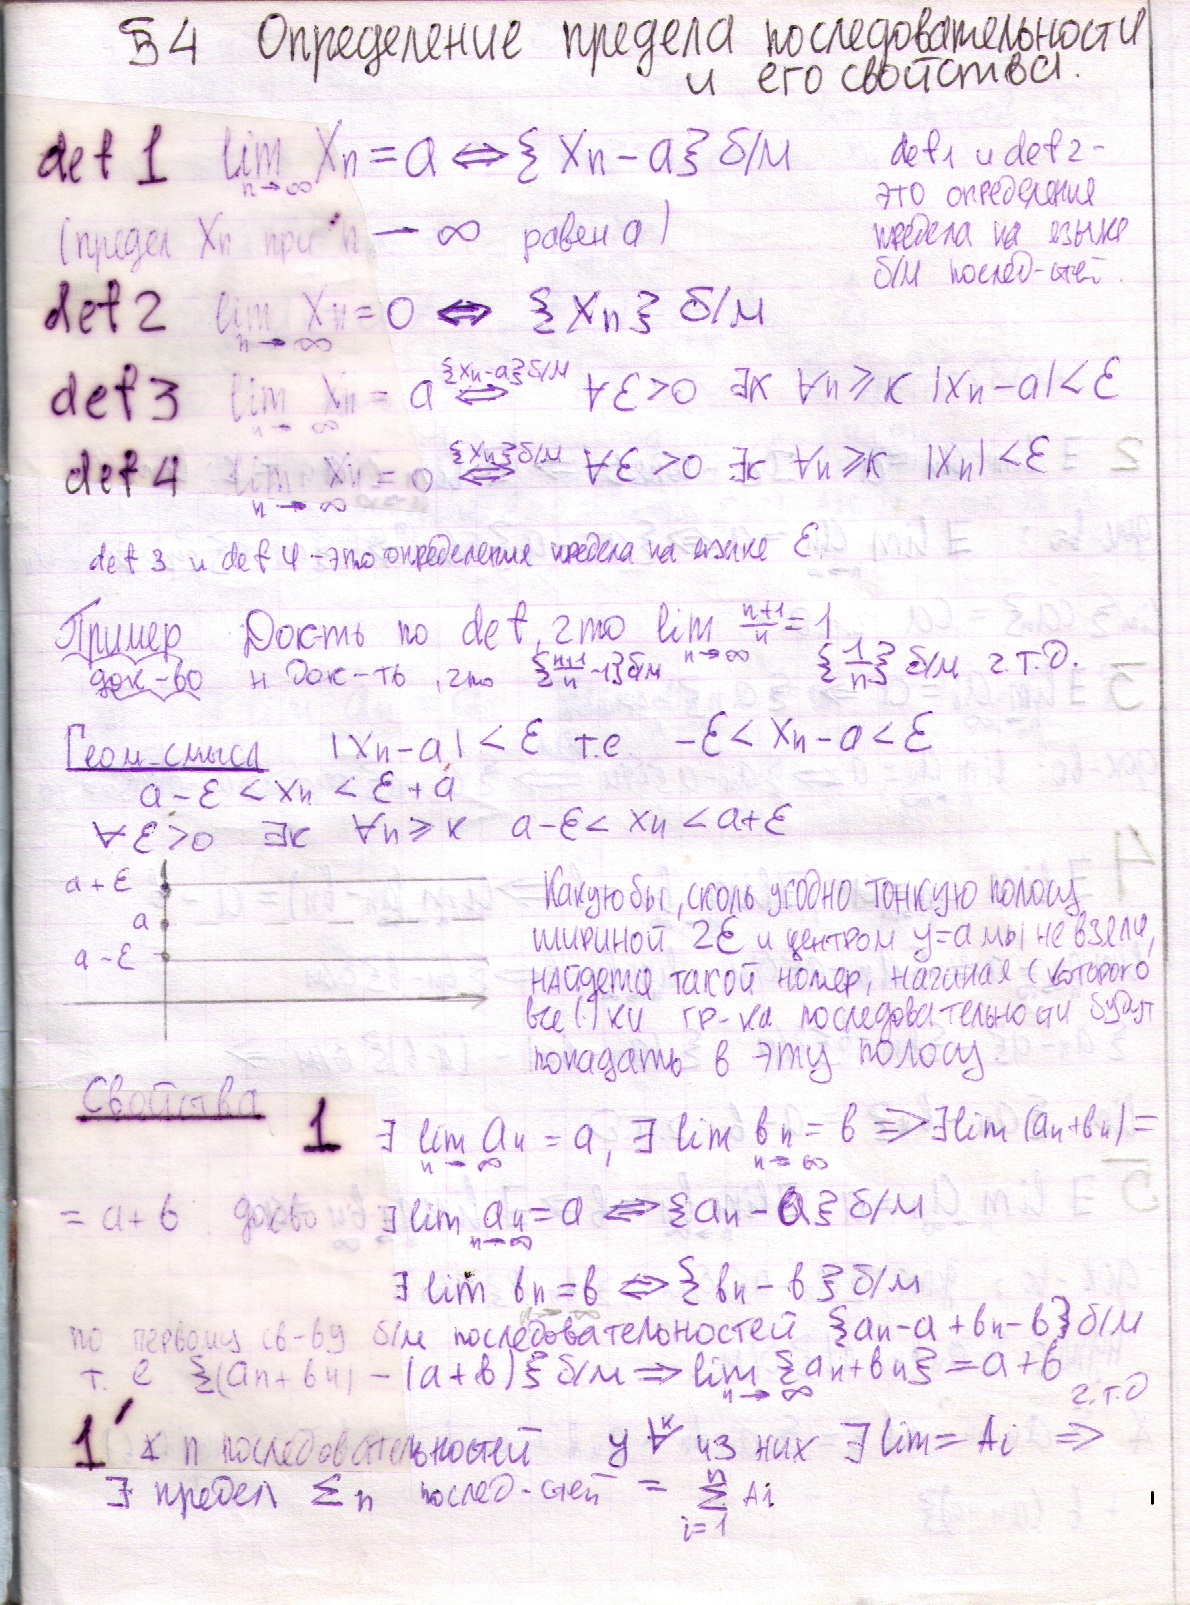 §4 Определение предела последовательности
и его свойства.
def 1 lim Xn = a ⇔ {Xn - a} б/м
n→∞
(предел Xn при n → ∞ равен a)
def1 и def2 -
это определения
предела на языке
б/м послед-стей.
def 2 lim Xn = 0 ⇔ {Xn} б/м
n→∞
def 3 lim Xn = a {Xn-a} б/м ⇔ ∀ε>0 ∃k ∀n≥k |Xn-a|<ε
n→∞
def 4 lim Xn = 0 {Xn} б/м ⇔ ∀ε>0 ∃k ∀n≥k |Xn|<ε
n→∞
def 3 и def 4 - это определения предела на языке ε.
Пример Док-ть по def, что lim n+1/n = 1
n→∞
док-во н док-ть, что {n+1/n -1} б/м {1/n} б/м ч.т.д.
Геом. смысл |Xn-a| < ε т.е -ε < Xn-a < ε
a-ε < Xn < ε+a
∀ε>0 ∃k ∀n≥k a-ε < Xn < a+ε
a+ε
a
a-ε
Какую бы, сколь угодно тонкую полосу
шириной 2ε и центром y=a мы не взяли,
найдется такой номер, начиная с которого
все (·)ки гр-ка последовательности будут
попадать в эту полосу.
Свойства
1 ∃ lim an = a, ∃ lim вn = в ⇒ ∃ lim (an+вn) =
n→∞ n→∞
= a+в док-во ∃ lim an = a ⇔ {an - a} б/м
n→∞
∃ lim вn = в ⇔ {вn - в} б/м
n→∞
по первому св-ву б/м последовательностей {an-a+вn-в} б/м
т. е {(an+вn) - (a+в)} б/м ⇒ lim {an+вn} = a+в
n→∞
ч.т.д
1' n последовательностей у ∀ из них ∃ lim = Ai ⇒
∃ предел Σn послед-стей = Σ Ai
n
i=1